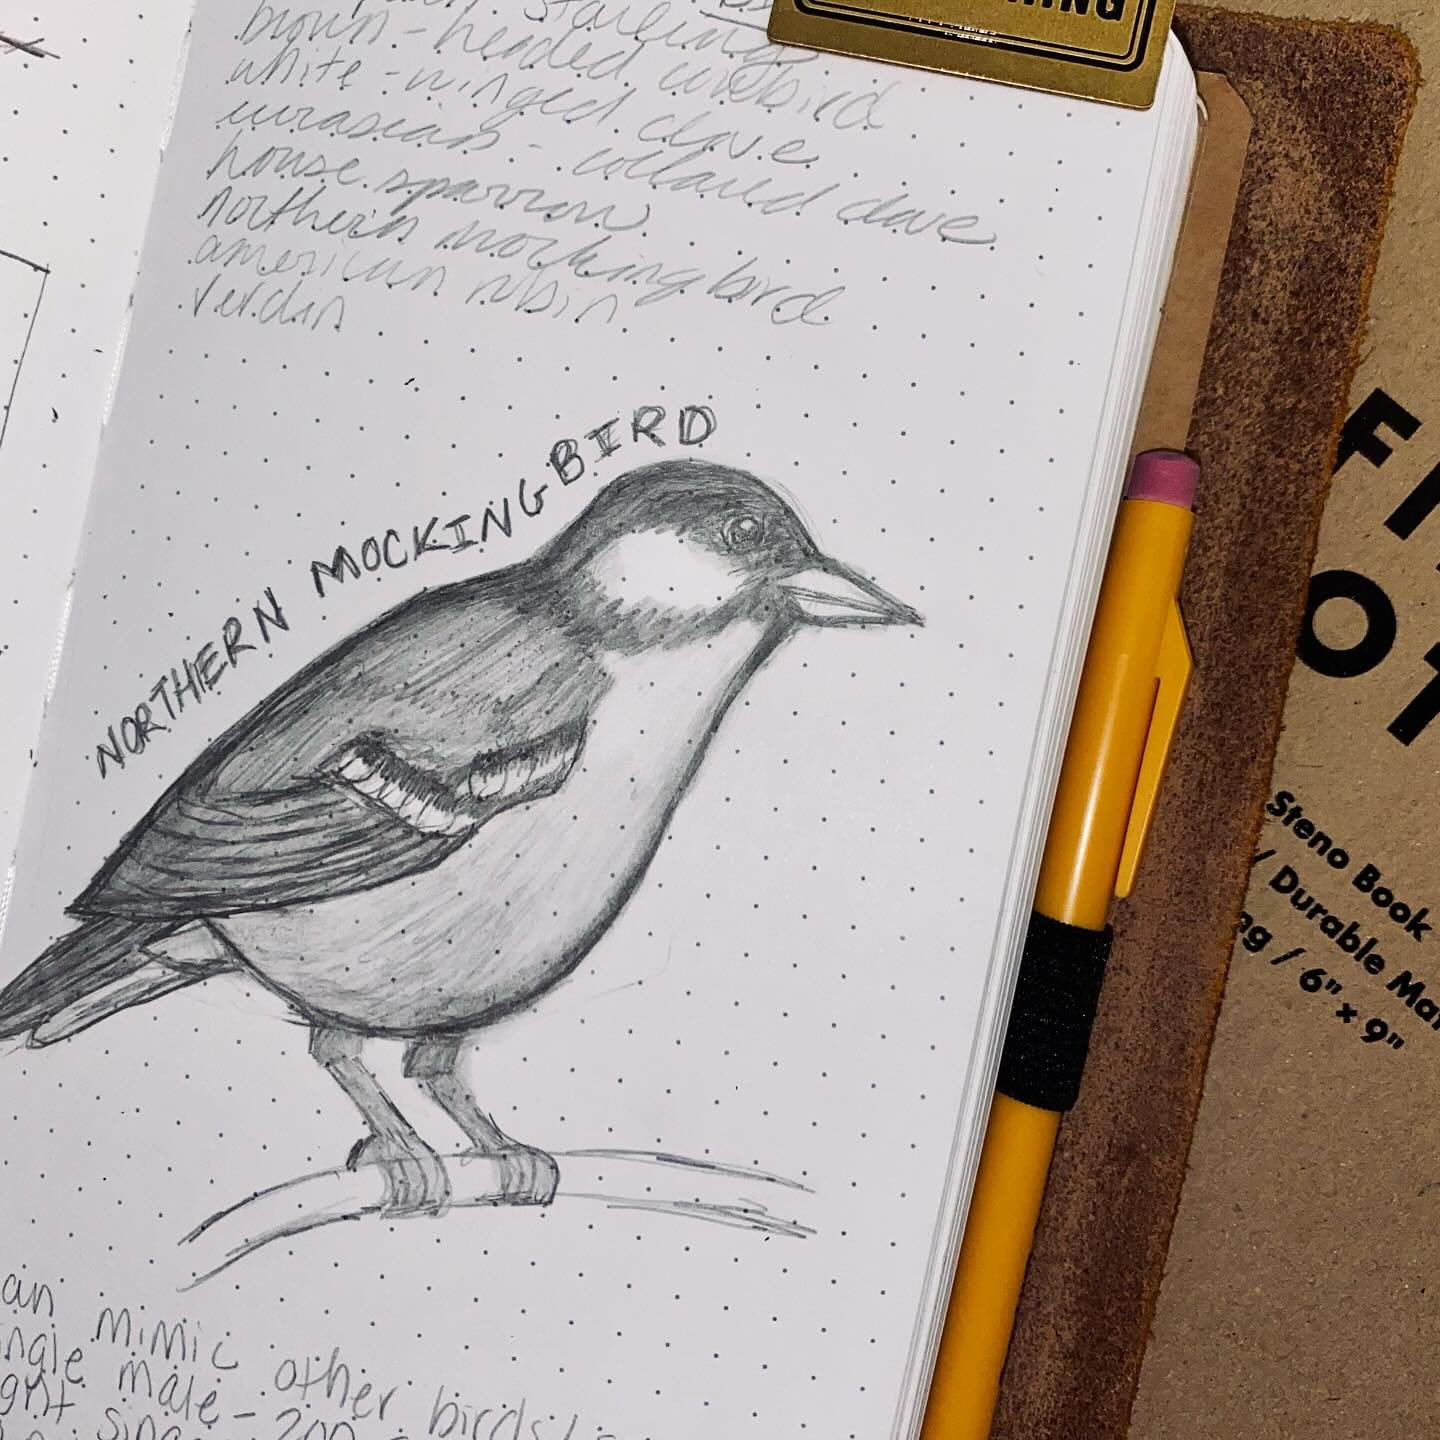 starling
brown-headed cowbird
white-winged dove
eurasian-collared dove
house sparrow
northern mockingbird
american robin
verdin
NORTHERN MOCKINGBIRD
an mimic other birds
ingle male - 200
ght sing
Steno Book
/ Durable
/ 6" × 9"